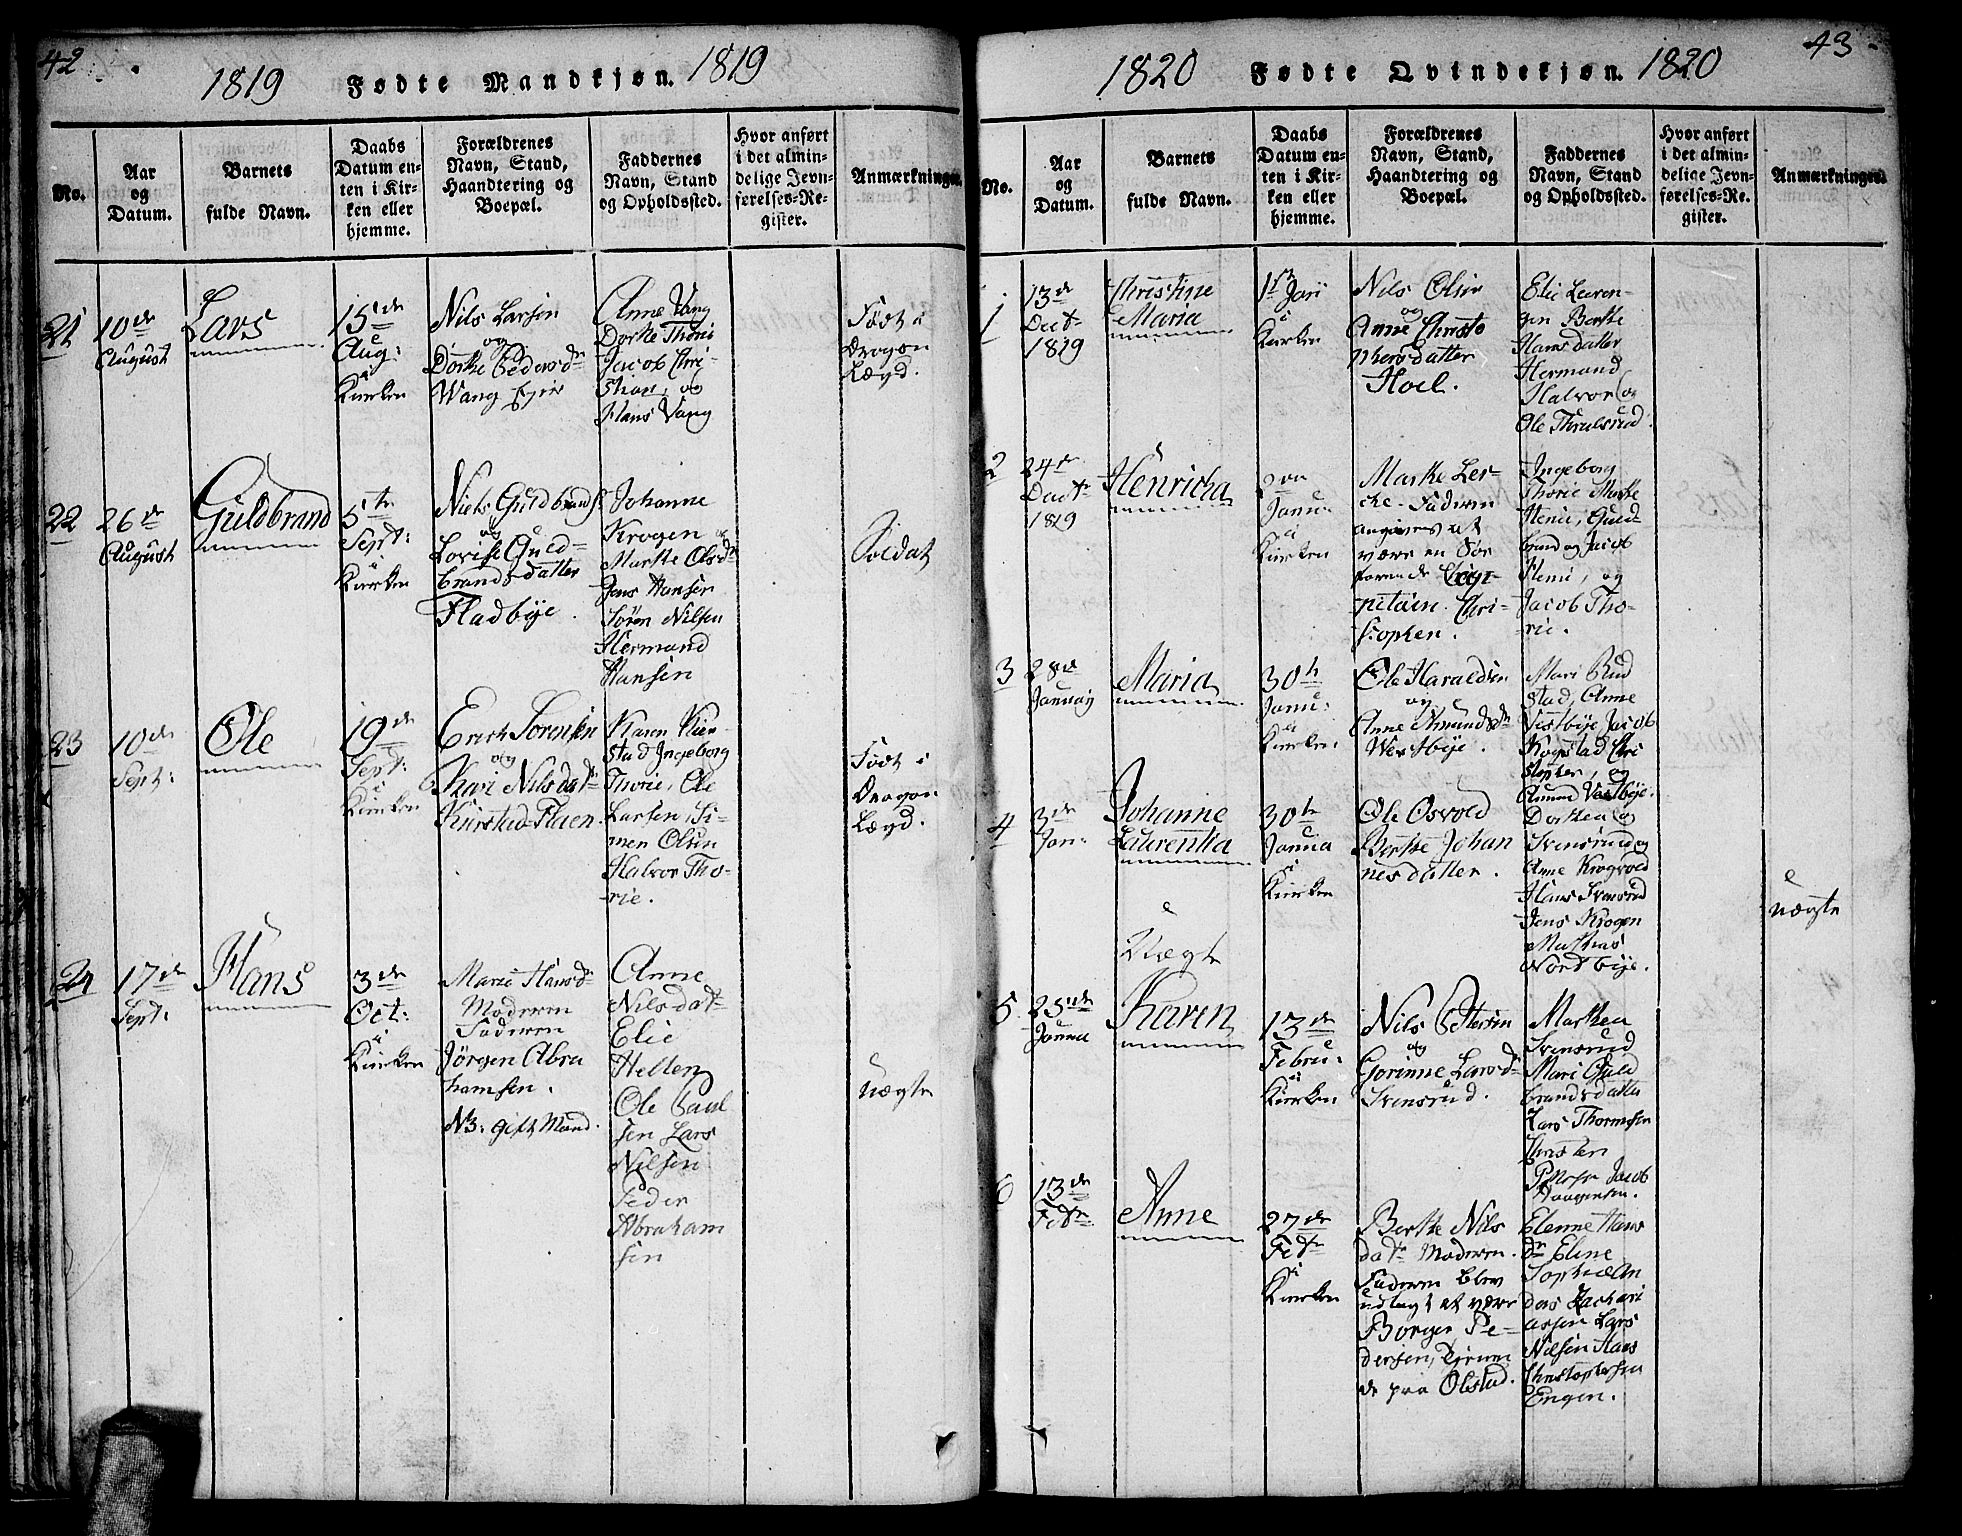 42
1819 Fødte Mandkjøn. 1819
No.
Aar
og
Datum.
Barnets
fulde Navn.
Daabs
Datum en-
ten i Kir-
ken eller
hjemme.
Forældrenes
Navn, Stand,
Haandtering og
Boepæl.
Faddernes
Navn, Stand
og Opholdssted.
Hvor anført
i det almin-
delige Jevn-
førelses-Re-
gister.
Anmærkninger.
21
10de
August
Lars
15de
Aug:
i
Kirken
Nils Larsen
og
Dorthe Pedersdr
Wang Eier
Anne Vang
Dorthe Thoni
Jacob Chri-
stian, og
Hans Vang
Født i
Dragon
Lægd.
22
26de
August
Guldbrand
5te
Sept:
i
Kirken
Niels Guldbrands.
og
Lovise Guld-
brandsdatter
Fladbye.
Johanne
Krogen og
Marthe Olsdr
Jens Hansen
Søren Nilsen
Hermand
Hansen
Soldat
23
10de
Sept:
Ole
19de
Sept:
i
Kirken
Erich Sorensen
og
Kari Nilsdatr
Kierstad Flaen.
Karen Kier-
stad Ingeborg
Thorie, Ole
Larsen, Si-
men Olsen
Halvor Tho-
rie.
Født i
Dragon
Lægd.
24
17de
Sept:
Hans
3de
Oct:
i
Kirken
Marie Hansdr
Moderen
Faderen
Jørgen Abra
hamsen.
NB: gift Mand.
Anne
Nilsdatr
Elie
Hellen
Ole Paul
sen Lars
Nilsen
Peder
Abraham
sen
uægte
43
1820 Fødte Qvindekjøn. 1820
No.
Aar
og
Datum.
Barnets
fulde Navn.
Daabs
Datum en-
ten i Kir-
ken eller
hjemme.
Forældrenes
Navn, Stand,
Haandtering og
Boepæl.
Faddernes
Navn, Stand
og Opholdssted.
Hvor anført
i det almin-
delige Jevn-
førelses-Re-
gister.
Anmærkninger.
1
13de
1819
Christine
Maria
i
Kirken
Nils Olsen
og
Anne Christo
phersdatter
Hoel.
Elie Lauren-
Berthe
Hansdatter
Hermand
Halvor og
Ole Thrulsrud
2
24de
1819
Henricha
Janu-
i
Kirken
Marthe Ler-
che. Faderen
angives at
være en
farende Cap-
pitain. Chri-
stopher.
Ingeborg
Thorie Marthe
Guld-
brand og Jacob
og
Jacob Tho-
rie.
3
28de
Maria
30te
Janu:
i
Kirken
Ole Haraldsen
og
Anne Amundsdr
Westbye.
Mari Rud
stad, Anne
Vestbye Jacob
Kogstad Chri
stopher, og
Amund Vestbye.
4
3de
Jan:
Johanne
Laurentia
Uægte
30te
Janua
i
Kirken
Ole Osvold
Berthe Johan
nesdatter.
Dorthea
Svensrud og
Anne Krogvold
Hans Svensrud
Jens Krogen
Mathias
Nordbye.
uægte
5
25de
Janua
Karen
13de
Febru:
i
Kirken
Nils Pettersen
og
Gorinne Larsdr
Svensrud.
Marthea
Svensrud
Mari Guld
brandsdatter
Lars Thormsen
Christen
Jacob
Haagensen.
6
13de
Febr:
Anne
27de
Febr
i
Kirken
Berthe Nils
datr Moderen.
Faderen blev
udlagt at være
Borger Pe-
dersen, tjenen
de paa Olstad.
Elenne Hans
dr Eline
Sophie An
ders Zachari
assen Lars
Nilsen Hans
Christophersen
Engen.